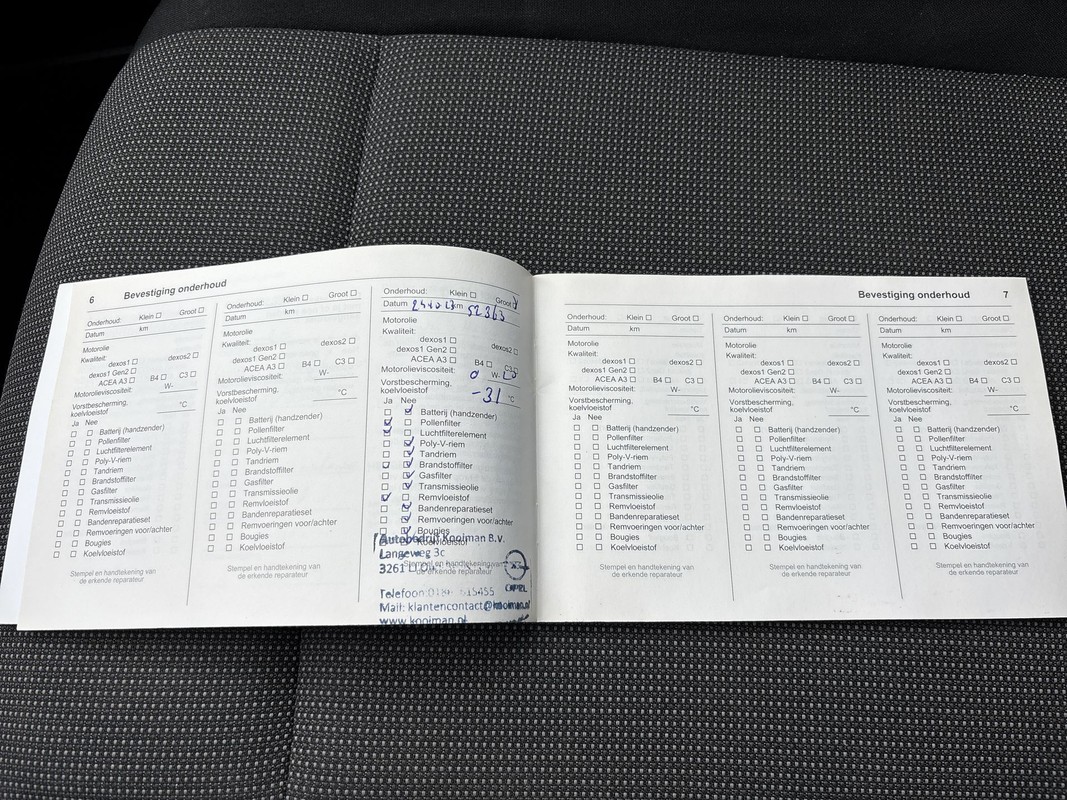 6 Bevestiging onderhoud
Onderhoud: Klein ☐ Groot ☐
Datum km
Motorolie
Kwaliteit:
dexos1 ☐ dexos2 ☐
dexos1 Gen2 ☐
ACEA A3 ☐ B4 ☐ C3 ☐
Motorolieviscositeit: W-
Vorstbescherming,
koelvloeistof °C
Ja Nee
☐ ☐ Batterij (handzender)
☐ ☐ Pollenfilter
☐ ☐ Luchtfilterelement
☐ ☐ Poly-V-riem
☐ ☐ Tandriem
☐ ☐ Brandstoffilter
☐ ☐ Gasfilter
☐ ☐ Transmissieolie
☐ ☐ Remvloeistof
☐ ☐ Bandenreparatieset
☐ ☐ Remvoeringen voor/achter
☐ ☐ Bougies
☐ ☐ Koelvloeistof
Stempel en handtekening van
de erkende reparateur
Onderhoud: Klein ☐ Groot ☐
Datum km
Motorolie
Kwaliteit:
dexos1 ☐ dexos2 ☐
dexos1 Gen2 ☐
ACEA A3 ☐ B4 ☐ C3 ☐
Motorolieviscositeit: W-
Vorstbescherming,
koelvloeistof °C
Ja Nee
☐ ☐ Batterij (handzender)
☐ ☐ Pollenfilter
☐ ☐ Luchtfilterelement
☐ ☐ Poly-V-riem
☐ ☐ Tandriem
☐ ☐ Brandstoffilter
☐ ☐ Gasfilter
☐ ☐ Transmissieolie
☐ ☐ Remvloeistof
☐ ☐ Bandenreparatieset
☐ ☐ Remvoeringen voor/achter
☐ ☐ Bougies
☐ ☐ Koelvloeistof
Stempel en handtekening van
de erkende reparateur
Onderhoud: Klein ☐ Groot ☑
Datum km 52363
Motorolie
Kwaliteit:
dexos1 ☐ dexos2 ☐
dexos1 Gen2 ☐
ACEA A3 ☐ B4 ☐ C3 ☐
Motorolieviscositeit: 0 W-
Vorstbescherming,
koelvloeistof -31 °C
Ja Nee
☐ ☑ Batterij (handzender)
☑ ☐ Pollenfilter
☑ ☐ Luchtfilterelement
☐ ☑ Poly-V-riem
☐ ☑ Tandriem
☐ ☑ Brandstoffilter
☐ ☑ Gasfilter
☐ ☑ Transmissieolie
☑ ☐ Remvloeistof
☐ ☑ Bandenreparatieset
☐ ☑ Remvoeringen voor/achter
☐ ☑ Bougies
Koelvloeistof
Autobedrijf Kooiman B.v.
Langeweg 3c
3261
Stempel en handtekening van
de erkende reparateur
OPEL
Telefoon:
Mail: klantencontact@kooiman.nl
www.kooiman.nl
Bevestiging onderhoud 7
Onderhoud: Klein ☐ Groot ☐
Datum km
Motorolie
Kwaliteit:
dexos1 ☐ dexos2 ☐
dexos1 Gen2 ☐
ACEA A3 ☐ B4 ☐ C3 ☐
Motorolieviscositeit: W-
Vorstbescherming,
koelvloeistof °C
Ja Nee
☐ ☐ Batterij (handzender)
☐ ☐ Pollenfilter
☐ ☐ Luchtfilterelement
☐ ☐ Poly-V-riem
☐ ☐ Tandriem
☐ ☐ Brandstoffilter
☐ ☐ Gasfilter
☐ ☐ Transmissieolie
☐ ☐ Remvloeistof
☐ ☐ Bandenreparatieset
☐ ☐ Remvoeringen voor/achter
☐ ☐ Bougies
☐ ☐ Koelvloeistof
Stempel en handtekening van
de erkende reparateur
Onderhoud: Klein ☐ Groot ☐
Datum km
Motorolie
Kwaliteit:
dexos1 ☐ dexos2 ☐
dexos1 Gen2 ☐
ACEA A3 ☐ B4 ☐ C3 ☐
Motorolieviscositeit: W-
Vorstbescherming,
koelvloeistof °C
Ja Nee
☐ ☐ Batterij (handzender)
☐ ☐ Pollenfilter
☐ ☐ Luchtfilterelement
☐ ☐ Poly-V-riem
☐ ☐ Tandriem
☐ ☐ Brandstoffilter
☐ ☐ Gasfilter
☐ ☐ Transmissieolie
☐ ☐ Remvloeistof
☐ ☐ Bandenreparatieset
☐ ☐ Remvoeringen voor/achter
☐ ☐ Bougies
☐ ☐ Koelvloeistof
Stempel en handtekening van
de erkende reparateur
Onderhoud: Klein ☐ Groot ☐
Datum km
Motorolie
Kwaliteit:
dexos1 ☐ dexos2 ☐
dexos1 Gen2 ☐
ACEA A3 ☐ B4 ☐ C3 ☐
Motorolieviscositeit: W-
Vorstbescherming,
koelvloeistof °C
Ja Nee
☐ ☐ Batterij (handzender)
☐ ☐ Pollenfilter
☐ ☐ Luchtfilterelement
☐ ☐ Poly-V-riem
☐ ☐ Tandriem
☐ ☐ Brandstoffilter
☐ ☐ Gasfilter
☐ ☐ Transmissieolie
☐ ☐ Remvloeistof
☐ ☐ Bandenreparatieset
☐ ☐ Remvoeringen voor/achter
☐ ☐ Bougies
☐ ☐ Koelvloeistof
Stempel en handtekening van
de erkende reparateur